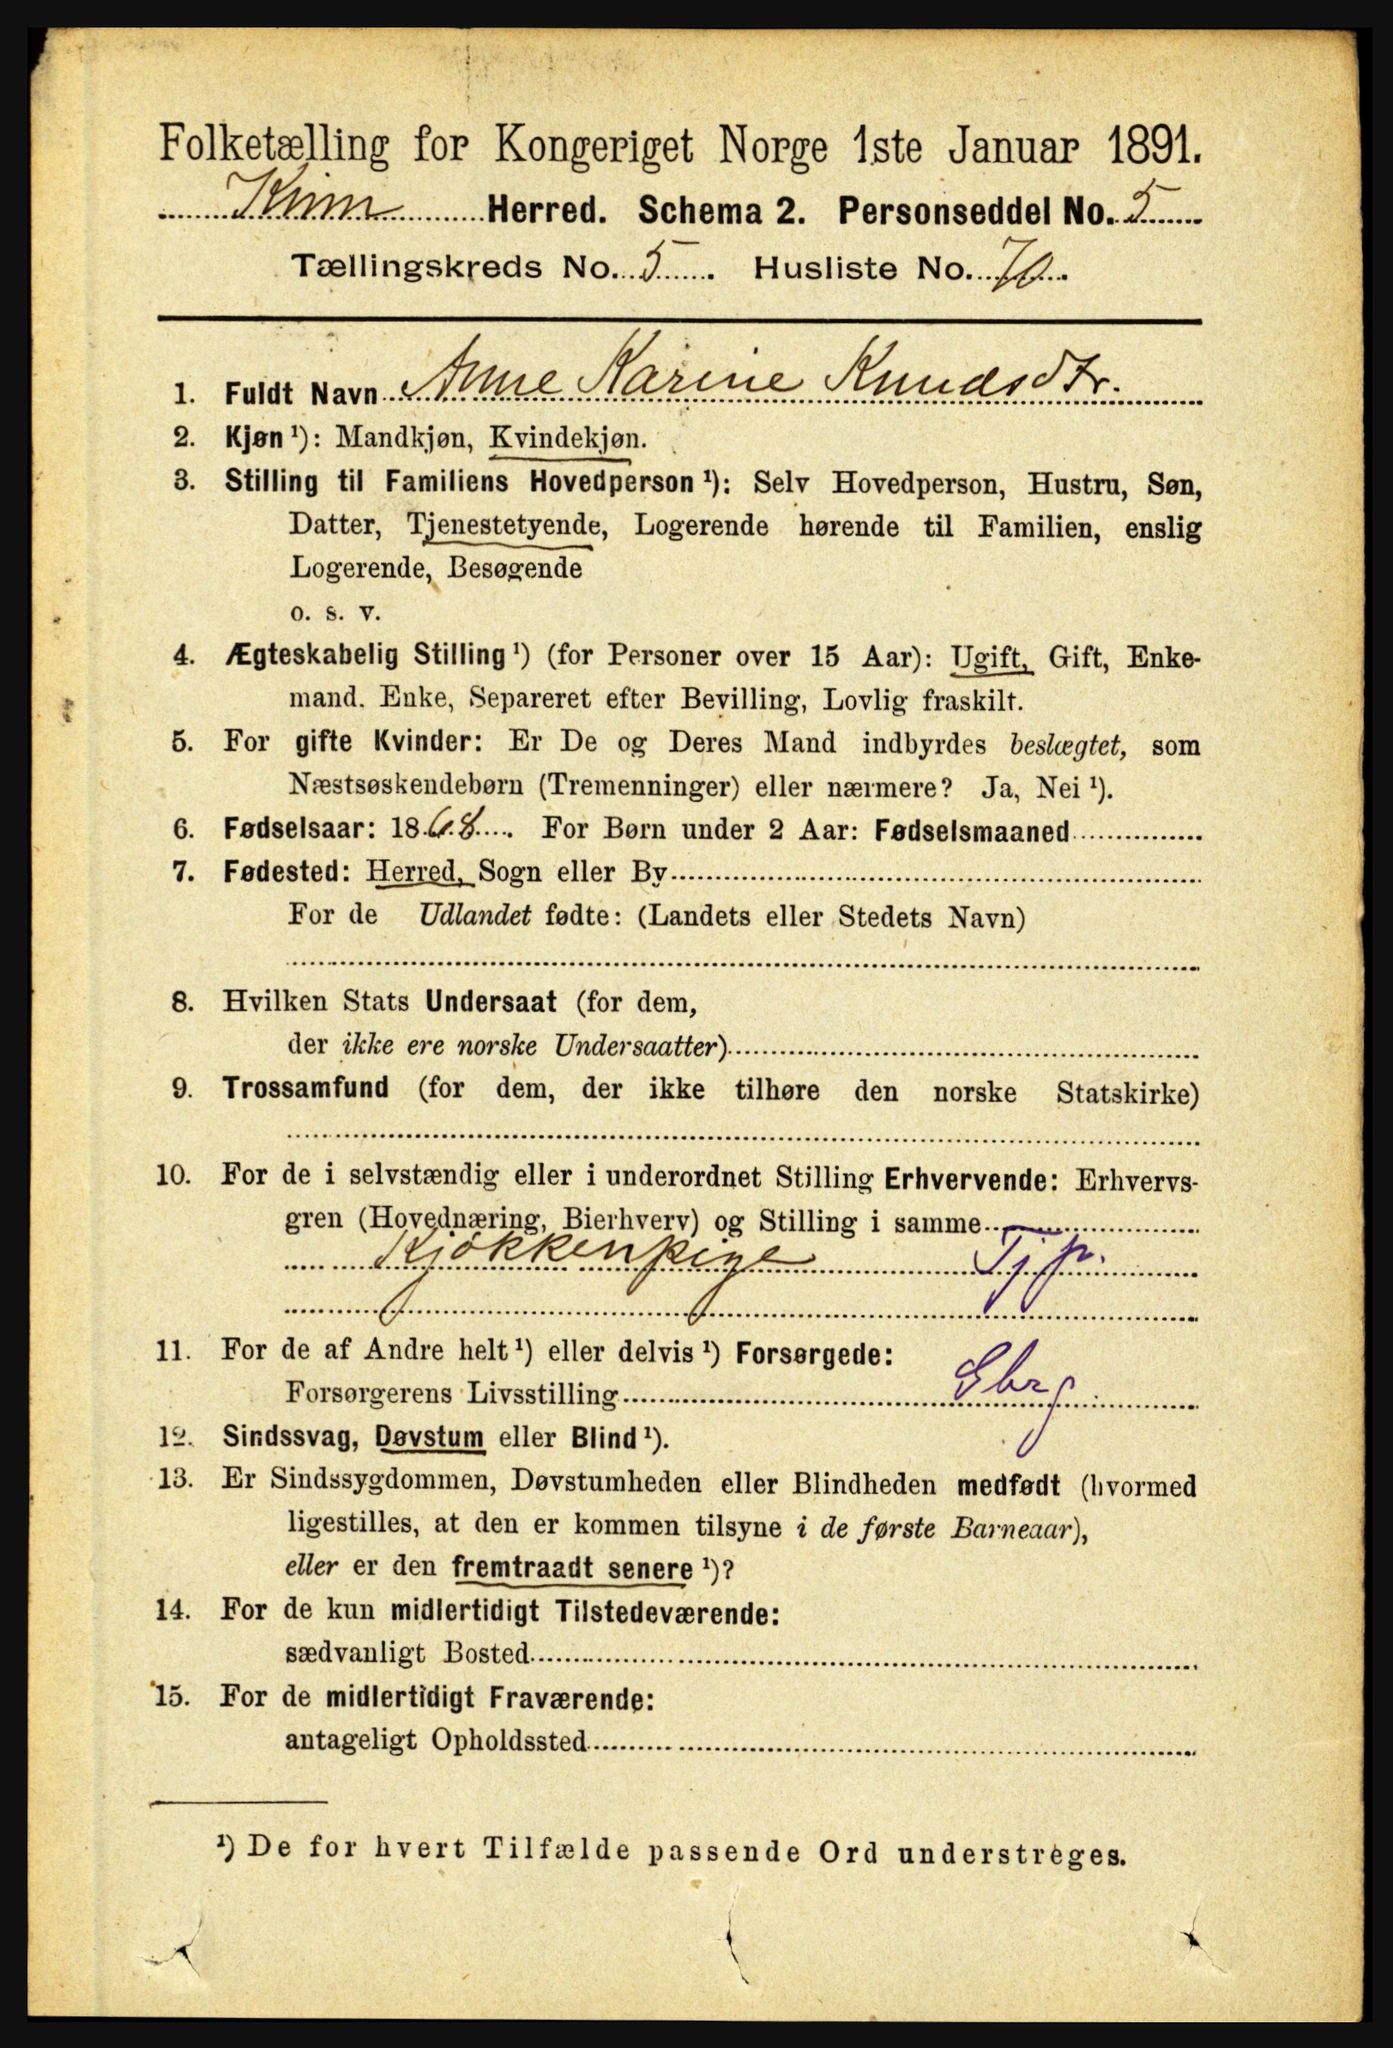 Folketælling for Kongeriget Norge 1ste Januar 1891.
Kinn Herred. Schema 2. Personseddel No. 5
Tællingskreds No. 5. Husliste No. 70.
1. Fuldt Navn Anne Karine Knudsdtr.
2. Kjøn ¹): Mandkjøn, Kvindekjøn.
3. Stilling til Familiens Hovedperson ¹): Selv Hovedperson, Hustru, Søn,
Datter, Tjenestetyende, Logerende hørende til Familien, enslig
Logerende, Besøgende
o. s. v.
4. Ægteskabelig Stilling ¹) (for Personer over 15 Aar): Ugift, Gift, Enke-
mand, Enke, Separeret efter Bevilling, Lovlig fraskilt.
5. For gifte Kvinder: Er De og Deres Mand indbyrdes beslægtet, som
Næstsøskendebørn (Tremenninger) eller nærmere? Ja, Nei ¹).
6. Fødselsaar: 1868. For Børn under 2 Aar: Fødselsmaaned
7. Fødested: Herred, Sogn eller By
For de Udlandet fødte: (Landets eller Stedets Navn)
8. Hvilken Stats Undersaat (for dem,
der ikke ere norske Undersaatter)
9. Trossamfund (for dem, der ikke tilhøre den norske Statskirke)
10. For de i selvstændig eller i underordnet Stilling Erhvervende: Erhvervs-
gren (Hovednæring, Bierhverv) og Stilling i samme
Kjökkenpige Tjp.
11. For de af Andre helt ¹) eller delvis ¹) Forsørgede:
Forsørgerens Livsstilling Gbrg
12. Sindssvag, Døvstum eller Blind ¹).
13. Er Sindssygdommen, Døvstumheden eller Blindheden medfødt (hvormed
ligestilles, at den er kommen tilsyne i de første Barneaar),
eller er den fremtraadt senere ¹)?
14. For de kun midlertidigt Tilstedeværende:
sædvanligt Bosted
15. For de midlertidigt Fraværende:
antageligt Opholdssted
¹) De for hvert Tilfælde passende Ord understreges.